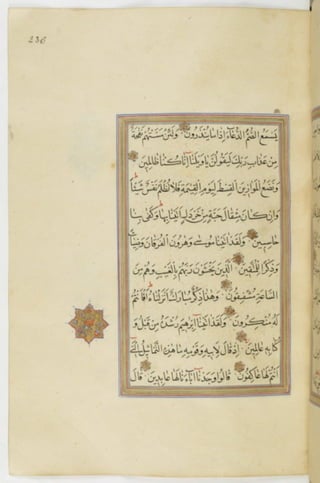 236
يَسْمَعُ الصُّمُّ الدُّعَاءَ إِذَا مَا يُنذَرُونَ وَلَئِن مَسَّتْهُمْ نَفْحَةٌ
مِنْ عَذَابِ رَبِّكَ لَيَقُولُنَّ يَا وَيْلَنَا إِنَّا كُنَّا ظَالِمِينَ
وَنَضَعُ الْمَوَازِينَ الْقِسْطَ لِيَوْمِ الْقِيَمَةِ فَلَا تُظْلَمُ نَفْسٌ شَيْئًا
وَإِن كَانَ مِثْقَالَ حَبَّةٍ مِنْ خَرْدَلٍ أَتَيْنَا بِهَا وَكَفَى بِنَا
حَاسِبِينَ وَلَقَدْ اتَيْنَا مُوسَى وَهَرُونَ الْفُرْقَانَ وَضِيَاءً
وَذِكْرًا لِلْمُتَّقِينَ الَّذِينَ يَخْشَوْنَ رَبَّهُمْ بِالْغَيْبِ وَهُمْ مِنَ
السَّاعَةِ مُشْفِقُونَ وَهَذَا ذِكْرٌ مُبَارَكٌ أَنْزَلْنَاهُ أَفَأَنْتُمْ
لَهُ مُنْكِرُونَ وَلَقَدْ اتَيْنَا إِبْرَهِيمَ رُشْدَهُ مِنْ قَبْلُ وَ
كُنَّا بِهِ عَالِمِينَ إِذْ قَالَ لِأَبِيهِ وَقَوْمِهِ مَا هَذِهِ التَّمَاثِيلُ الَّتِي
أَنْتُمْ لَهَا عَاكِفُونَ قَالُوا وَجَدْنَا آبَاءَنَا لَهَا عَابِدِينَ قَالَ